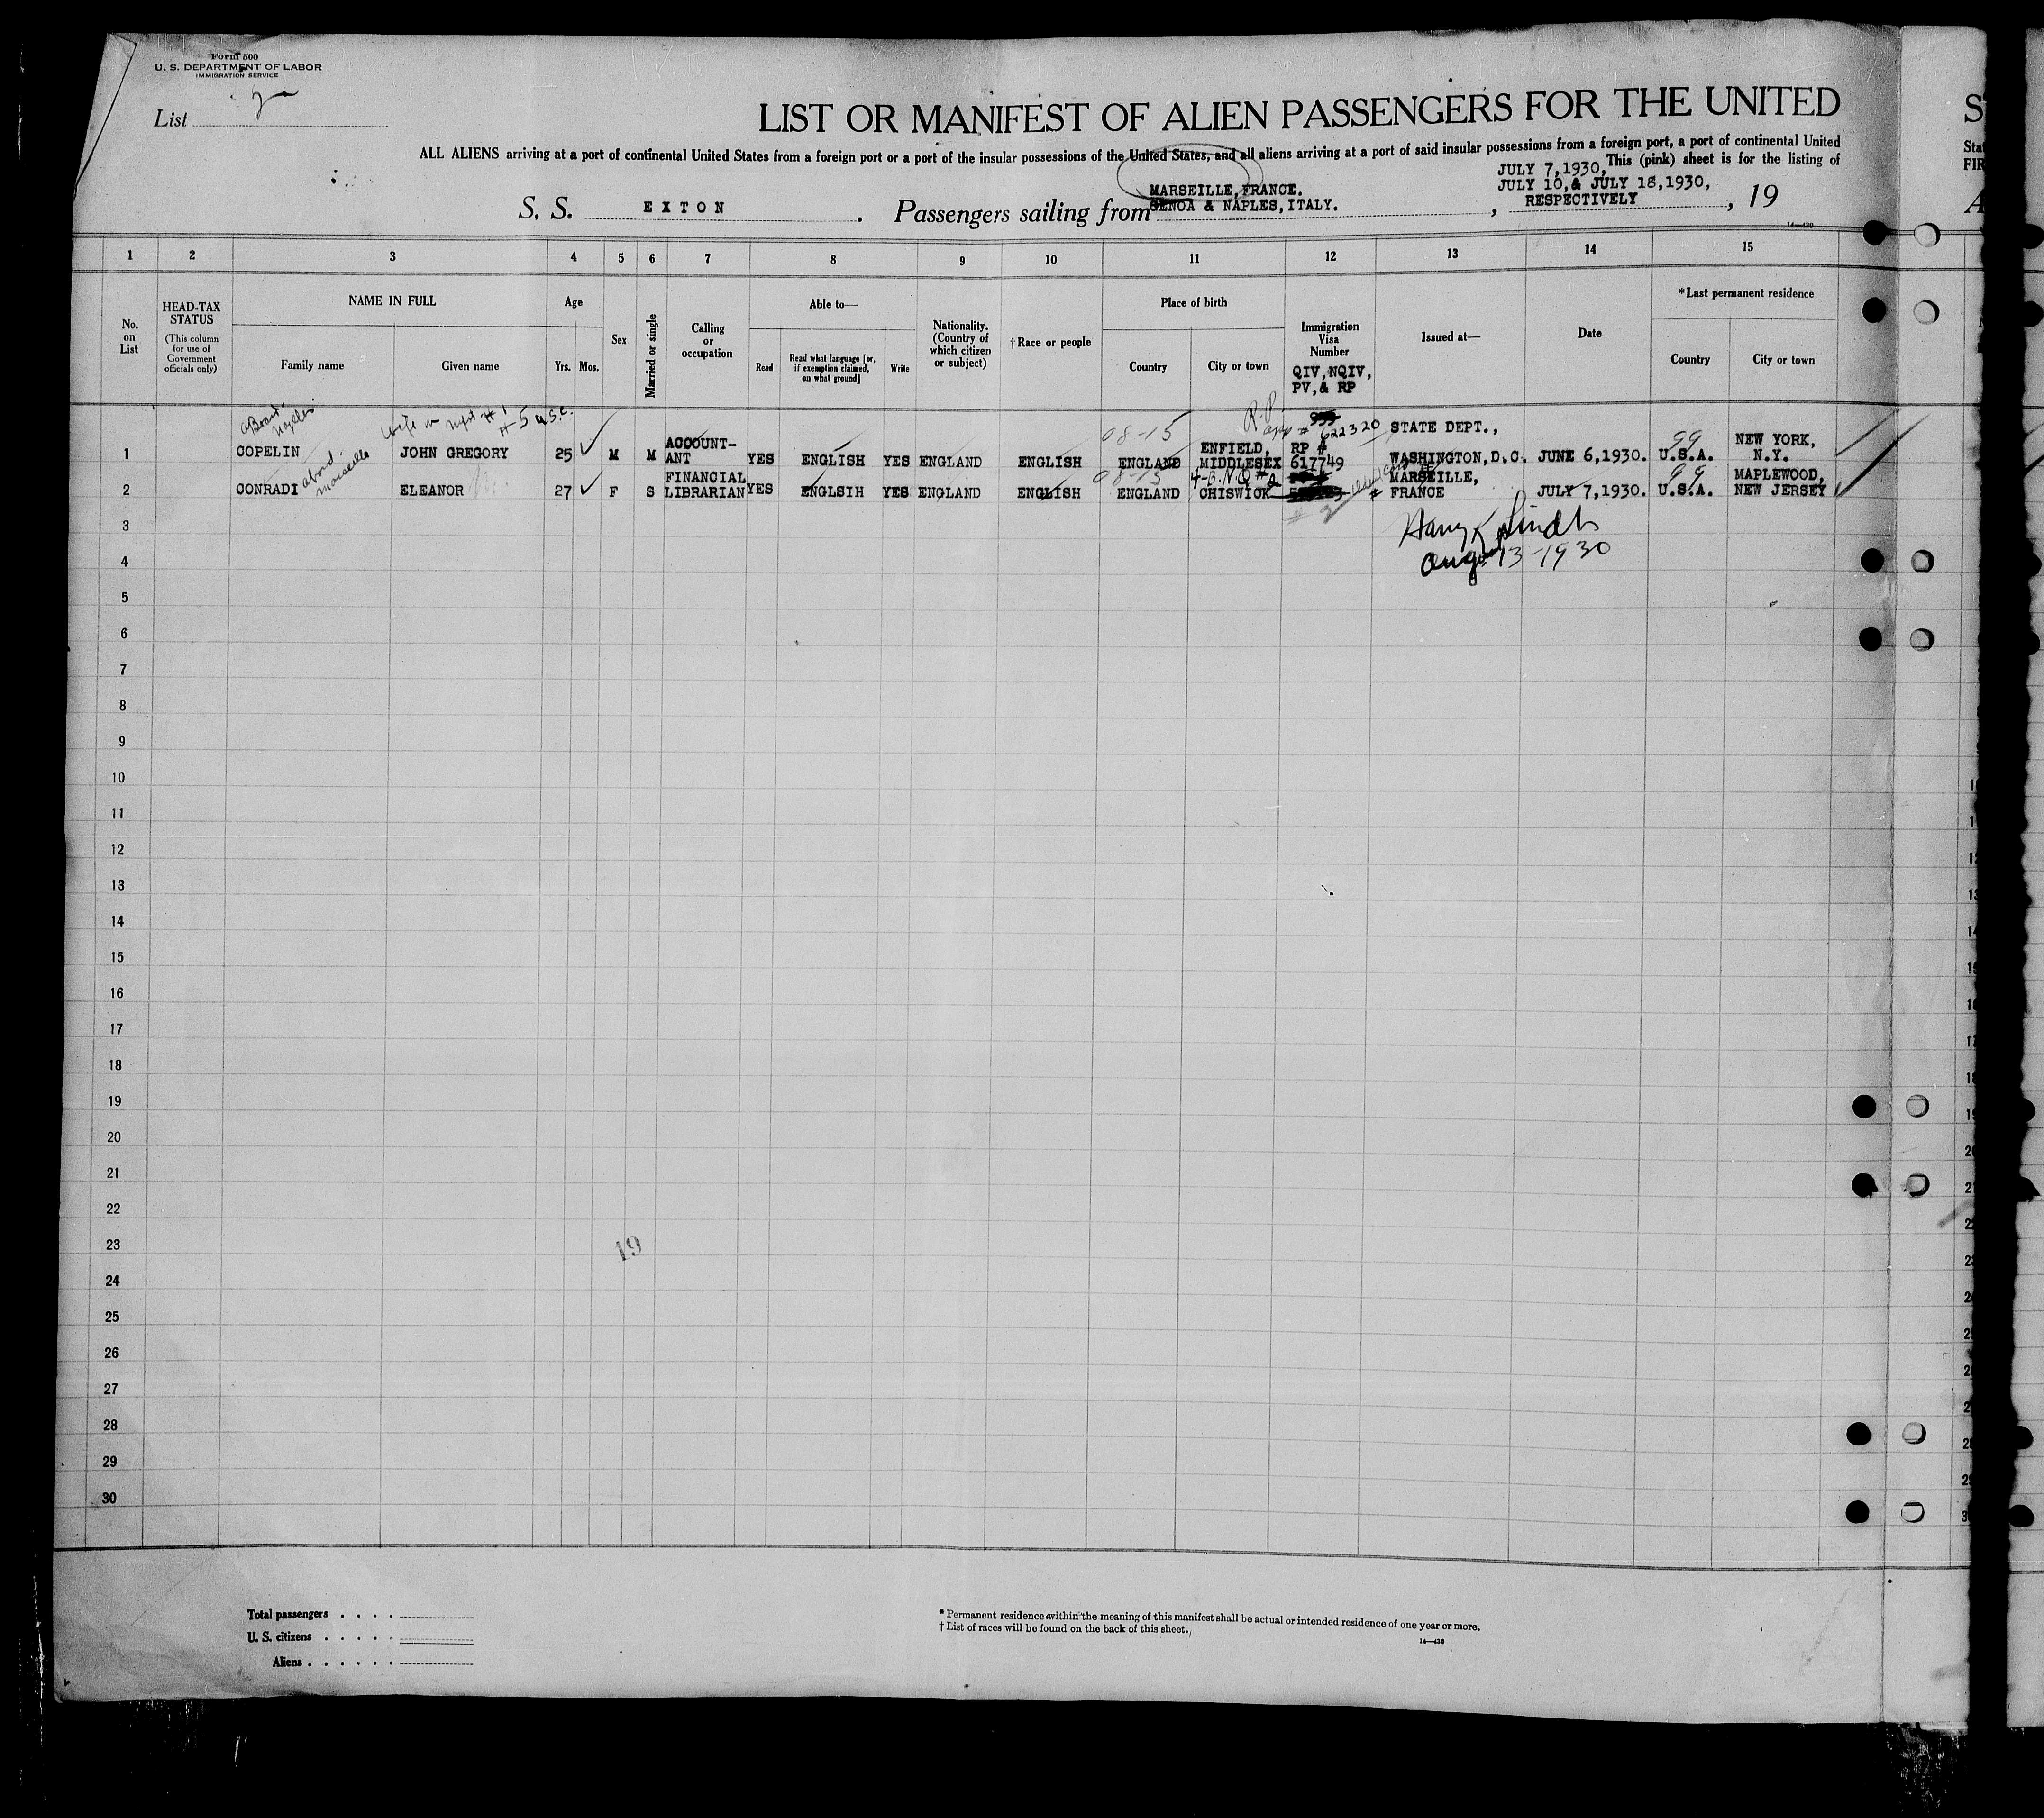 Form 500
U. S. DEPARTMENT OF LABOR
IMMIGRATION SERVICE
List 2
LIST OR MANIFEST OF ALIEN PASSENGERS FOR THE UNITED
ALL ALIENS arriving at a port of continental United States from a foreign port or a port of the insular possessions of the United States, and all aliens arriving at a port of said insular possessions from a foreign port, a port of continental United
This (pink) sheet is for the listing of
JULY 7,1930,
JULY 10,& JULY 18,1930,
RESPECTIVELY
S. S. EXTON . Passengers sailing from MARSEILLE,FRANCE.
GENOA & NAPLES,ITALY. , , 19
14—430
1 2 3 4 5 6 7 8 9 10 11 12 13 14 15
No. on List
HEAD-TAX STATUS
(This column for use of Government officials only)
NAME IN FULL
Family name Given name
Age
Yrs. Mos.
Sex
Married or single
Calling or occupation
Able to—
Read
Read what language [or, if exemption claimed, on what ground]
Write
Nationality. (Country of which citizen or subject)
†Race or people
Place of birth
Country City or town
Immigration Visa Number
QIV,NQIV,
PV,& RP
Issued at—
Date
*Last permanent residence
Country City or town
Naples
wife on # 1
#5 U.S.C.
R.P.
# 622320
08-15
99
1 COPELIN JOHN GREGORY 25 M M ACCOUNT-ANT YES ENGLISH YES ENGLAND ENGLISH ENGLAND ENFIELD, MIDDLESEX RP # 617749 STATE DEPT., WASHINGTON,D.C. JUNE 6,1930. U.S.A. NEW YORK, N.Y.
Marseille
08-15
4-B.N.Q # 2
99
2 CONRADI ELEANOR 27 F S FINANCIAL LIBRARIAN YES ENGLSIH YES ENGLAND ENGLISH ENGLAND CHISWICK MARSEILLE, FRANCE JULY 7,1930. U.S.A. MAPLEWOOD, NEW JERSEY
Aug 13-1930
3
4
5
6
7
8
9
10
11
12
13
14
15
16
17
18
19
20
21
22
23
19
24
25
26
27
28
29
30
Total passengers . . . .
U. S. citizens . . . . .
Aliens . . . . . .
* Permanent residence within the meaning of this manifest shall be actual or intended residence of one year or more.
† List of races will be found on the back of this sheet.